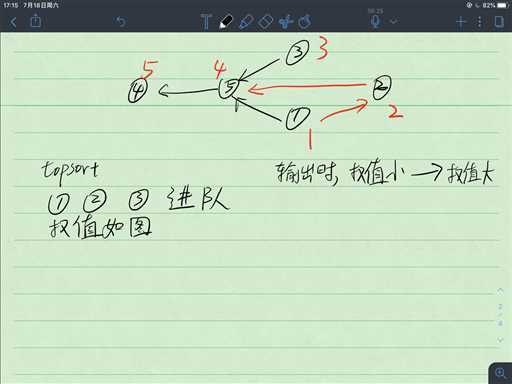 17:15 7月18日周六
82%
56:25
③ 3
5 4
④ ⑤ ②
① 2
1
topsort
输出时, 权值小→权值大
① ② ③ 进队
权值如图
2
/
4